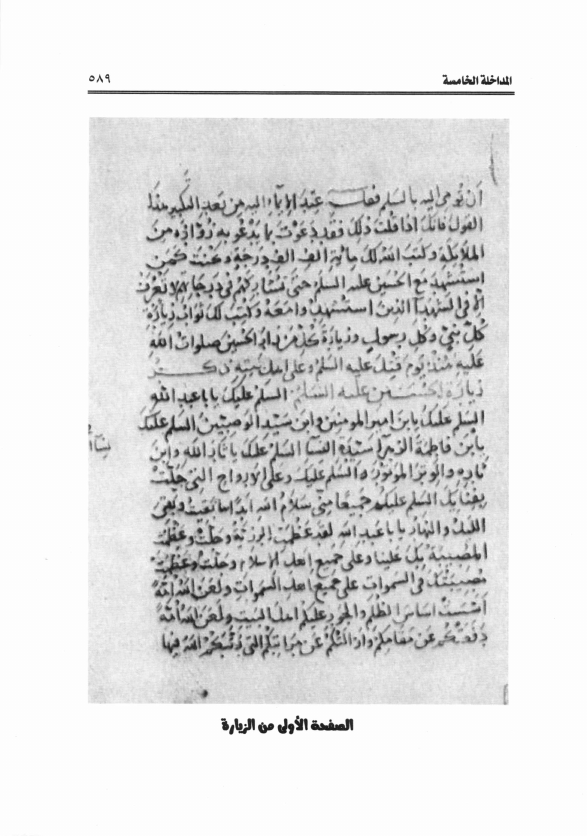 المداخلة الخامسة
٥٨٩
أن تومى إليه بالسلم فقلت عند الإيماء إليه من بعد التكبير هذا
القول فانك اذا قلت ذلك فقد دعوت بما يدعو به زواره من
الملائكة وكتب الله لك مائة الف الف درجة وكنت كمن
استشهد مع الحسين عليه السلم حتى تشاركهم في درجاتهم لا تعرف
إلا في الشهدآ الذين استشهدوا معه وكتب لك ثواب زيارة
كل نبي وكل رسول وزيارة كل من زار الحسين صلوات الله
عليه منذ يوم قتل عليه السلم وعلى اهل بيته
زيارة الحسين عليه السلام السلم عليك يا با عبد الله
السلم عليك يا بن امير المومنين وابن سيد الوصيين السلم عليك
يا بن فاطمة الزهرا سيدة النسا السلم عليك يا ثار الله وابن
ثاره والوتر الموتور السلم عليك وعلى الارواح التي حلت
بفنايك السلم عليكم جميعا مني سلام الله ابدا ما بقيت وبقي
الليل والنهار يا با عبد الله لقد عظمت الرزية وجلت وعظمت
المصيبة بك علينا وعلى جميع اهل الاسلام وجلت وعظمت
مصيبتك في السموات على جميع اهل السموات ولعن الله امة
اسست اساس الظلم والجور عليكم اهل البيت ولعن الله امة
دفعتكم عن مقامكم وازالتكم عن مراتبكم التي رتبكم الله فيها
الصفحة الأولى من الزيارة